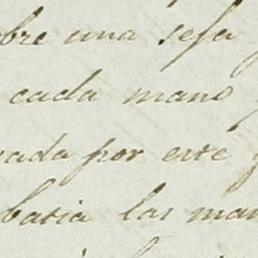 bre una sefa
cada mano
ada por este
batia las man